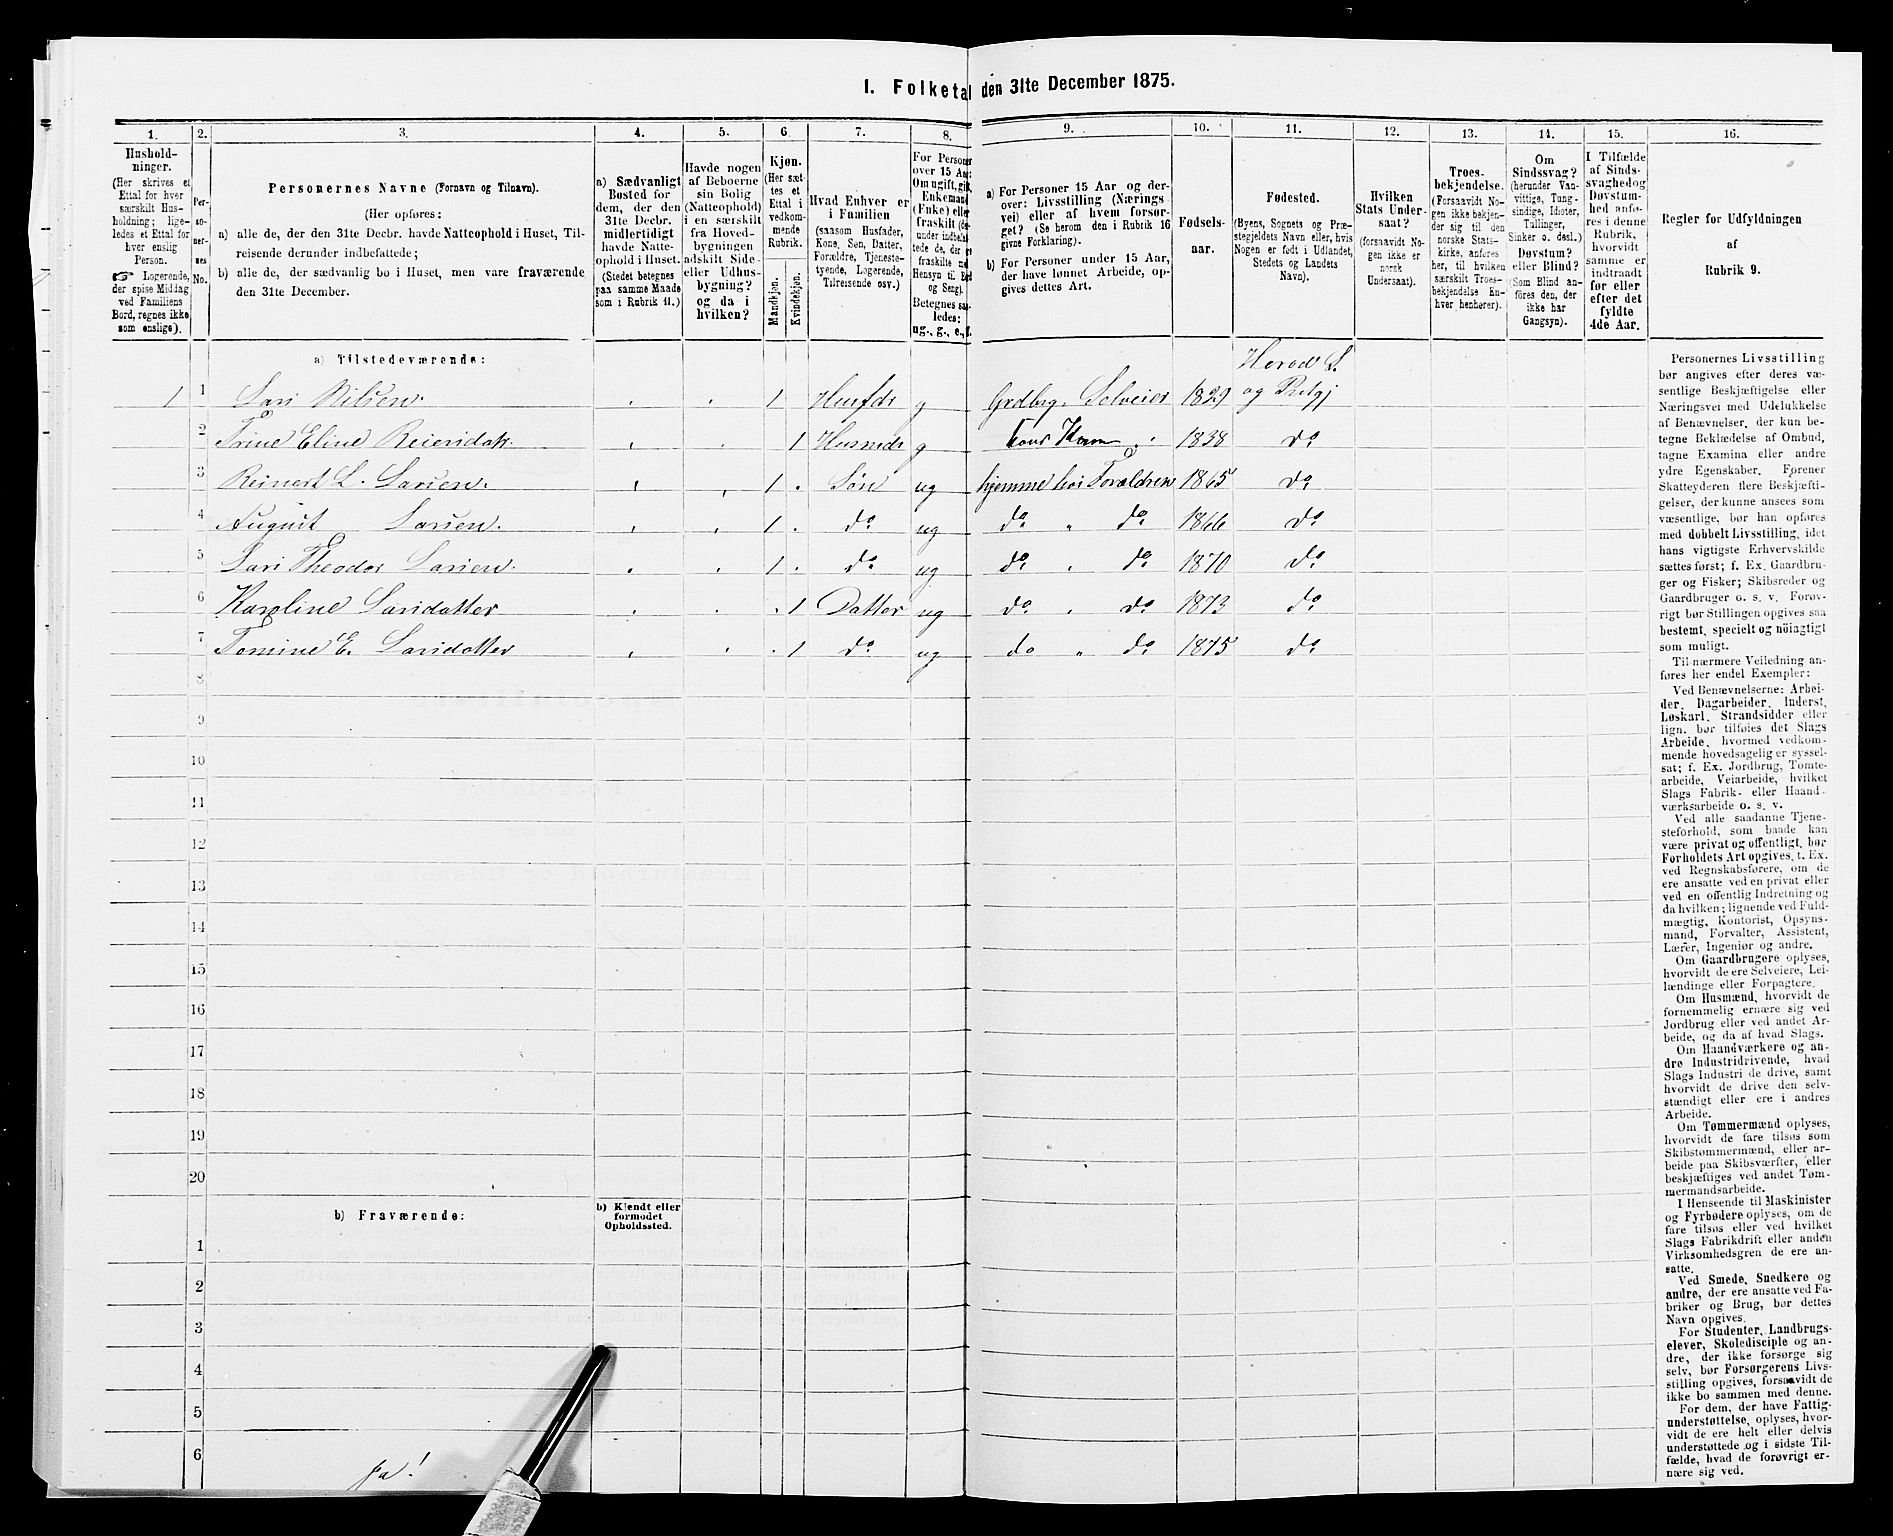 I. Folketal den 31te December 1875.
1. 2. 3. 4. 5. 6. 7. 8. 9. 10. 11. 12. 13. 14. 15. 16.
Hushold-
ninger.
(Her skrives et
Ettal for hver
særskilt Hus-
holdning; lige-
ledes et Ettal for
hver enslig
Person.
☞ Logerende,
der spise Middag
ved Familiens
Bord, regnes ikke
som enslige).
Per-
so-
ner-
nes
No.
Personernes Navne (Fornavn og Tilnavn).
(Her opføres:
a) alle de, der den 31te Decbr. havde Natteophold i Huset, Til-
reisende derunder indbefattede;
b) alle de, der sædvanlig bo i Huset, men vare fraværende
den 31te December.
a) Sædvanligt
Bosted for
dem, der den
31te Decbr.
midlertidigt
havde Natte-
ophold i Huset.
(Stedet betegnes
paa samme Maade
som i Rubrik 11.)
Havde nogen
af Beboerne
sin Bolig
(Natteophold)
i en særskilt
fra Hoved-
bygningen
adskilt Side-
eller Udhus-
bygning?
og da i
hvilken?
Kjøn.
(Her sæt-
tes et
Ettal i
vedkom-
mende
Rubrik.
Mandkjøn.
Kvindekjøn.
Hvad Enhver er
i Familien
(saasom Husfader,
Kone, Søn, Datter,
Forældre, Tjeneste-
tyende, Logerende,
Tilreisende osv.)
For Personer
over 15 Aar:
Om ugift, gift,
Enkemand
(Enke) eller
fraskilt
Betegnes saa-
ledes:
ug., g., e., f.
a) For Personer 15 Aar og der-
over: Livsstilling (Nærings-
vei) eller af hvem forsør-
get? (Se herom den i Rubrik 16
givne Forklaring).
b) For Personer under 15 Aar,
der have lønnet Arbeide, op-
gives dettes Art.
Fødsels-
aar.
Fødested.
(Byens, Sognets og Præ-
stegjeldets Navn eller, hvis
Nogen er født i Udlandet,
Stedets og Landets
Navn).
Hvilken
Stats Under-
saat?
(forsaavidt No-
gen ikke er
norsk
Undersaat).
Troes-
bekjendelse.
(Forsaavidt No-
gen ikke bekjen-
der sig til den
norske Stats-
kirke, anføres
her, til hvilken
særskilt Troes-
bekjendelse En-
hver henhører).
Om
Sindssvag?
(herunder Van-
vittige, Tung-
sindige, Idioter,
Tullinger,
Sinker o. desl.)
Døvstum?
eller Blind?
(Som Blind an-
føres den, der
ikke har
Gangsyn).
I Tilfælde
af Sinds-
svaghed og
Døvstum-
hed anfø-
res i denne
Rubrik,
hvorvidt
samme er
indtraadt
før eller
efter det
fyldte
4de Aar.
Regler for Udfyldningen
af
Rubrik 9.
a) Tilstedeværende:
1 1 Lars Nilsen 1 Husfdr g Grdbrg. Selveier 1829 og
2 Trine Eline Reiersdatr. 1 Husmdr g hans Kone 1838 do
3 Reinert L. Larsen. 1 Søn ug hjemme hos Forældren 1865 do
4 August Larsen. 1 do ug do " do 1866 do
5 Lars Theodor Larsen. 1 do ug do " do 1870 do
6 Karoline Larsdatter 1 Datter ug do " do 1873 do
7 Tomine E. Larsdatter 1 do ug do " do 1875 do
8
9
10
11
12
13
14
15
16
17
18
19
20
b) Fraværende:
b) Kjendt eller
formodet
Opholdssted.
1
2
3
4
5
6
Ja!
Personernes Livsstilling
bør angives efter deres væ-
sentlige Beskjæftigelse eller
Næringsvei med Udelukkelse
af Benævnelser, der kun be-
tegne Beklædelse af Ombud,
tagne Examina eller andre
ydre Egenskaber. Forener
Skatteyderen flere Beskjæfti-
gelser, der kunne ansees som
væsentlige, bør han opføres
med dobbelt Livsstilling, idet
hans vigtigste Erhvervskilde
sættes først; f. Ex. Gaardbru-
ger og Fisker; Skibsreder og
Gaardbruger o. s. v. Forøv-
rigt bør Stillingen opgives saa
bestemt, specielt og nöiagtigt
som muligt.
Til nærmere Veiledning an-
føres her endel Exempler:
Ved Benævnelserne: Arbei-
der, Dagarbeider, Inderst,
Løskarl, Strandsidder eller
lign. bør tilføies det Slags
Arbeide, hvormed vedkom-
mende hovedsagelig er syssel-
sat; f. Ex. Jordbrug, Tømte-
arbeide, Veiarbeide, hvilket
Slags Fabrik- eller Haand-
værksarbeide o. s. v.
Ved alle saadanne Tjene-
steforhold, som baade kan
være privat og offentligt, bør
Forholdets Art opgives, t. Ex.
ved Regnskabsførere, om de
ere ansatte ved en privat eller
ved en offentlig Indretning og
da hvilken; lignende ved Fuld-
mægtig, Kontorist, Opsyns-
mand, Forvalter, Assistent,
Lærer, Ingeniør og andre.
Om Gaardbrugere oplyses,
hvorvidt de ere Selveiere, Lei-
lændinge eller Forpagtere.
Om Husmænd, hvorvidt de
fornemmelig ernære sig ved
Jordbrug eller ved andet Ar-
beide, og da af hvad Slags.
Om Haandværkere og an-
dre Industridrivende, hvad
Slags Industri de drive, samt
hvorvidt de drive den selv-
stændigt eller ere i andres
Arbeide.
Om Tømmermænd oplyses,
hvorvidt de fare tilsøs som
Skibstømmermænd, eller ar-
beide paa Skibsværfter, eller
beskjæftiges ved andet Tøm-
mermandsarbeide.
I Henseende til Maskinister
og Fyrbødere oplyses, om de
fare tilsøs eller ved hvilket
Slags Fabrikdrift eller anden
Virksomhedsgren de ere an-
satte.
Ved Smede, Snedkere og
andre, der ere ansatte ved Fa-
briker og Brug, bør dettes
Navn opgives.
For Studenter, Landbrugs-
elever, Skoledisciple og an-
dre, der ikke forsørge sig
selv, bør Forsørgerens Livs-
stilling opgives, forsaavidt de
ikke bo sammen med denne.
For dem, der have Fattig-
understøttelse, oplyses, hvor-
vidt de ere helt eller delvis
understøttede og i sidste Til-
fælde, hvad de forøvrigt er-
nære sig ved.